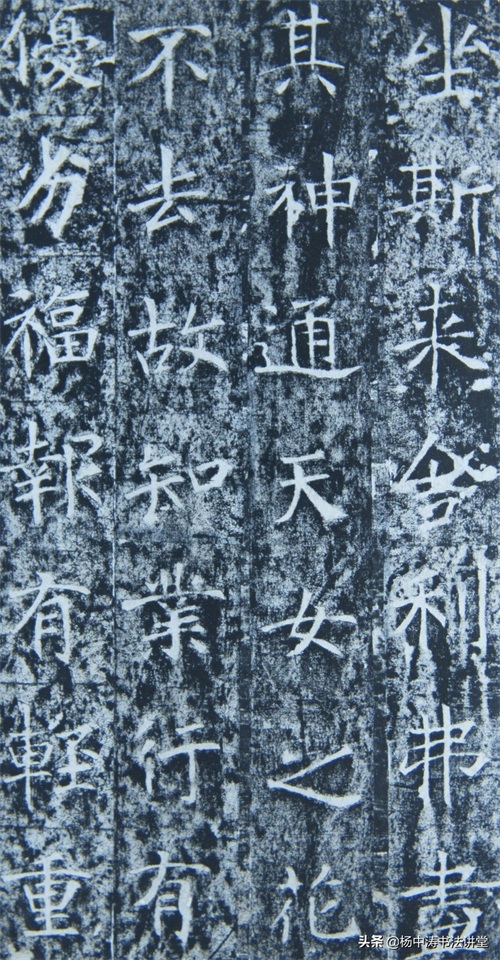 坐斯来舍利弗盡
其神通天女之花
不去故知業行有
優劣福報有輕重
头条 @杨中涛书法讲堂